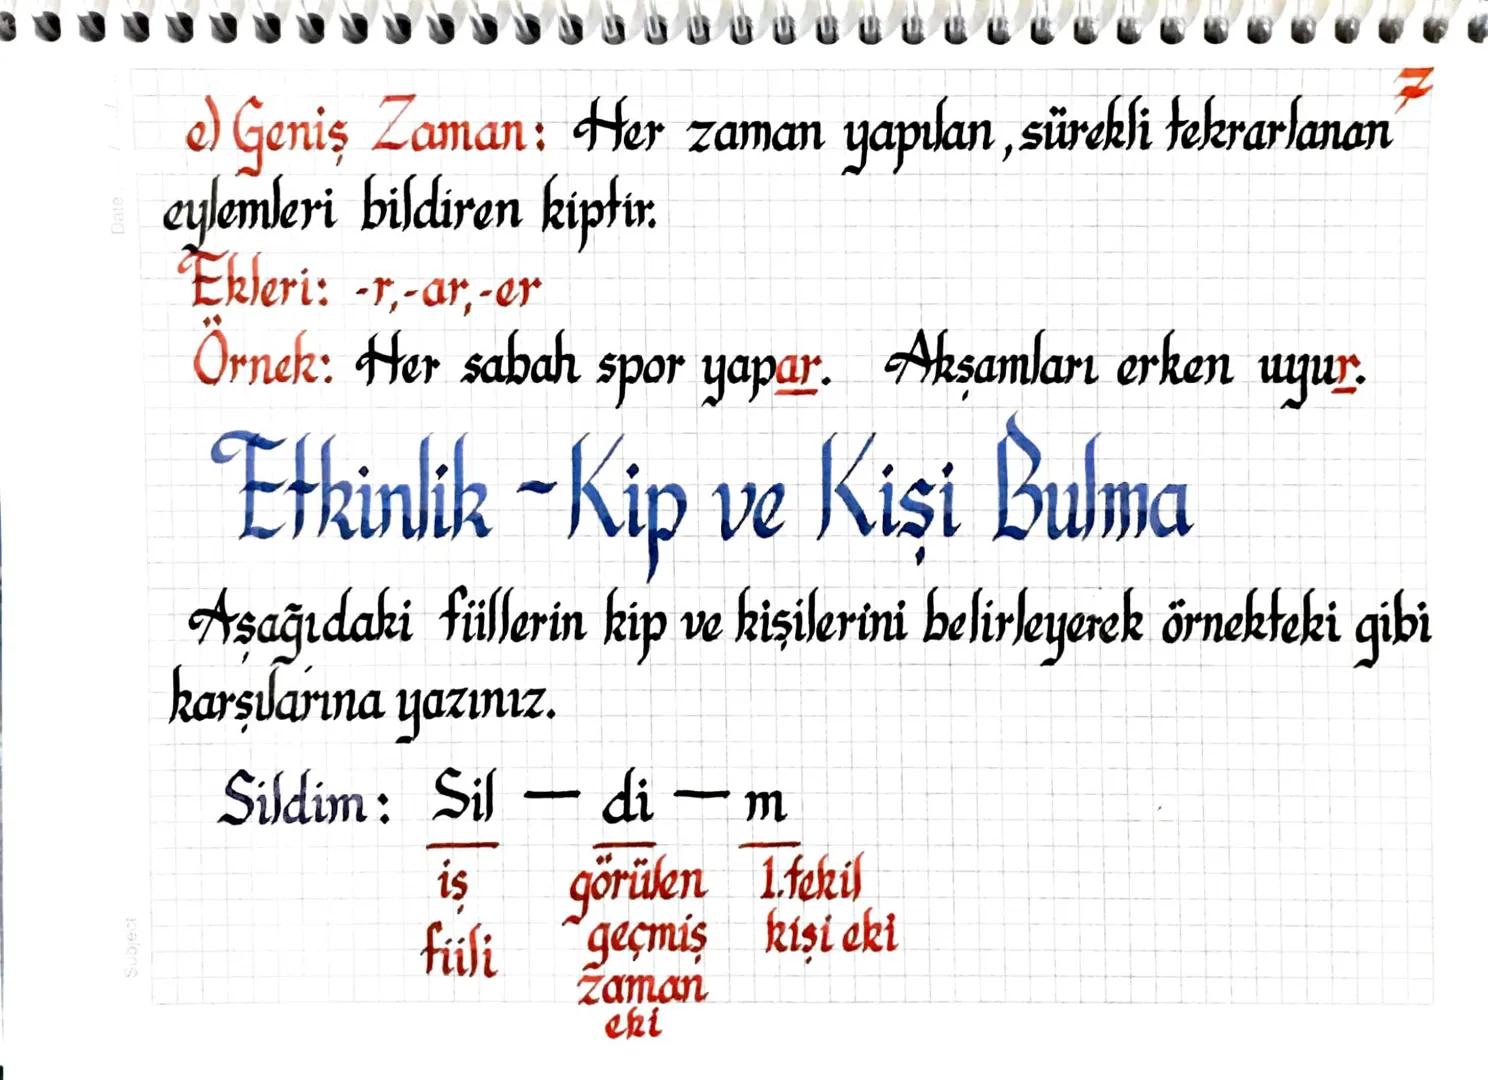 7
e) Geniş Zaman: Her zaman yapılan, sürekli tekrarlanan
eylemleri bildiren kiptir.
Ekleri: -r, -ar, -er
Örnek: Her sabah spor yapar. Akşamları erken uyur.
Etkinlik - Kip ve Kişi Bulma
Aşağıdaki fiillerin kip ve kişilerini belirleyerek örnekteki gibi
karşılarına yazınız.
Sildim: Sil — di — m
iş görülen 1.tekil
fiili geçmiş kişi eki
zaman
eki
Date
Subject